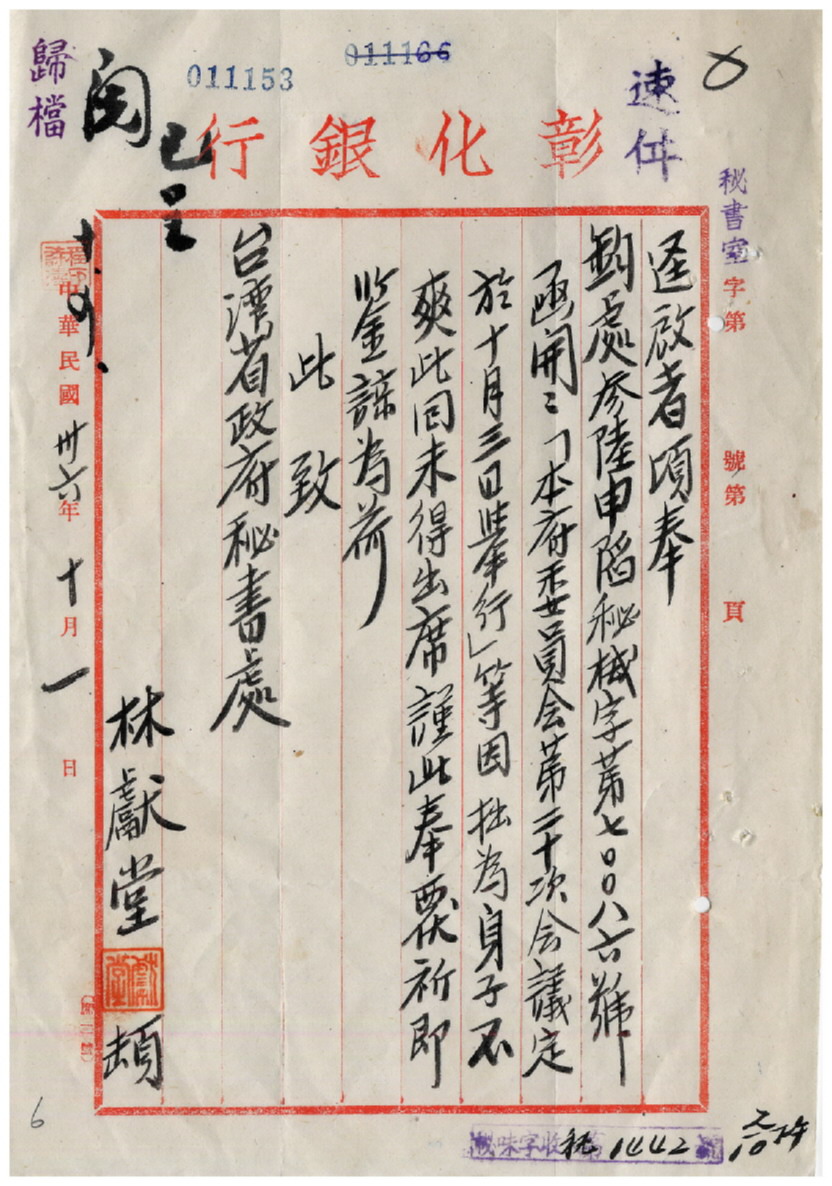 歸檔
閱
已呈
011153
011166
速件
彰化銀行
秘書室字第 號第 頁
逕啟者頃奉
鈞處參陸申陷秘機字第七〇〇八六號
函開：「本府委員会第二十次会議定
於十月三日舉行」等因拙為身子不
爽此回未得出席謹此奉覆祈即
鑒諒為荷
此致
台灣省政府秘書處
林獻堂 頓
中華民國卅六年十月一日
6
1442